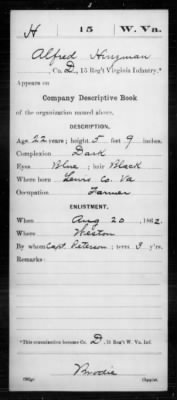 H 15 W. Va.
Alfred Hinzman
Co. D, 15 Reg't Virginia Infantry.*
Appears on
Company Descriptive Book
of the organization named above.
DESCRIPTION.
Age 22 years; height 5 feet 9 inches.
Complexion Dark
Eyes Blue; hair Black
Where born Lewis Co. Va
Occupation Farmer
ENLISTMENT.
When Aug 20, 1862.
Where Weston
By whom Capt. Peterson; term 3 y'rs.
Remarks:
*This organization became Co. D, 15 Reg't W. Va. Inf.
Brodie
Copyist.